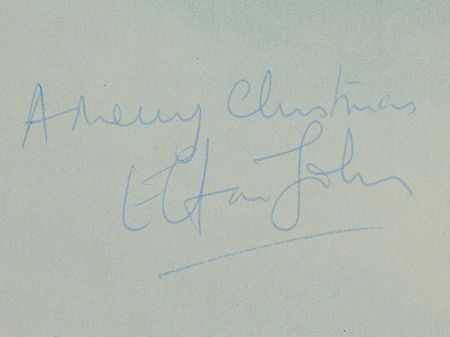 A Merry Christmas
Elton John